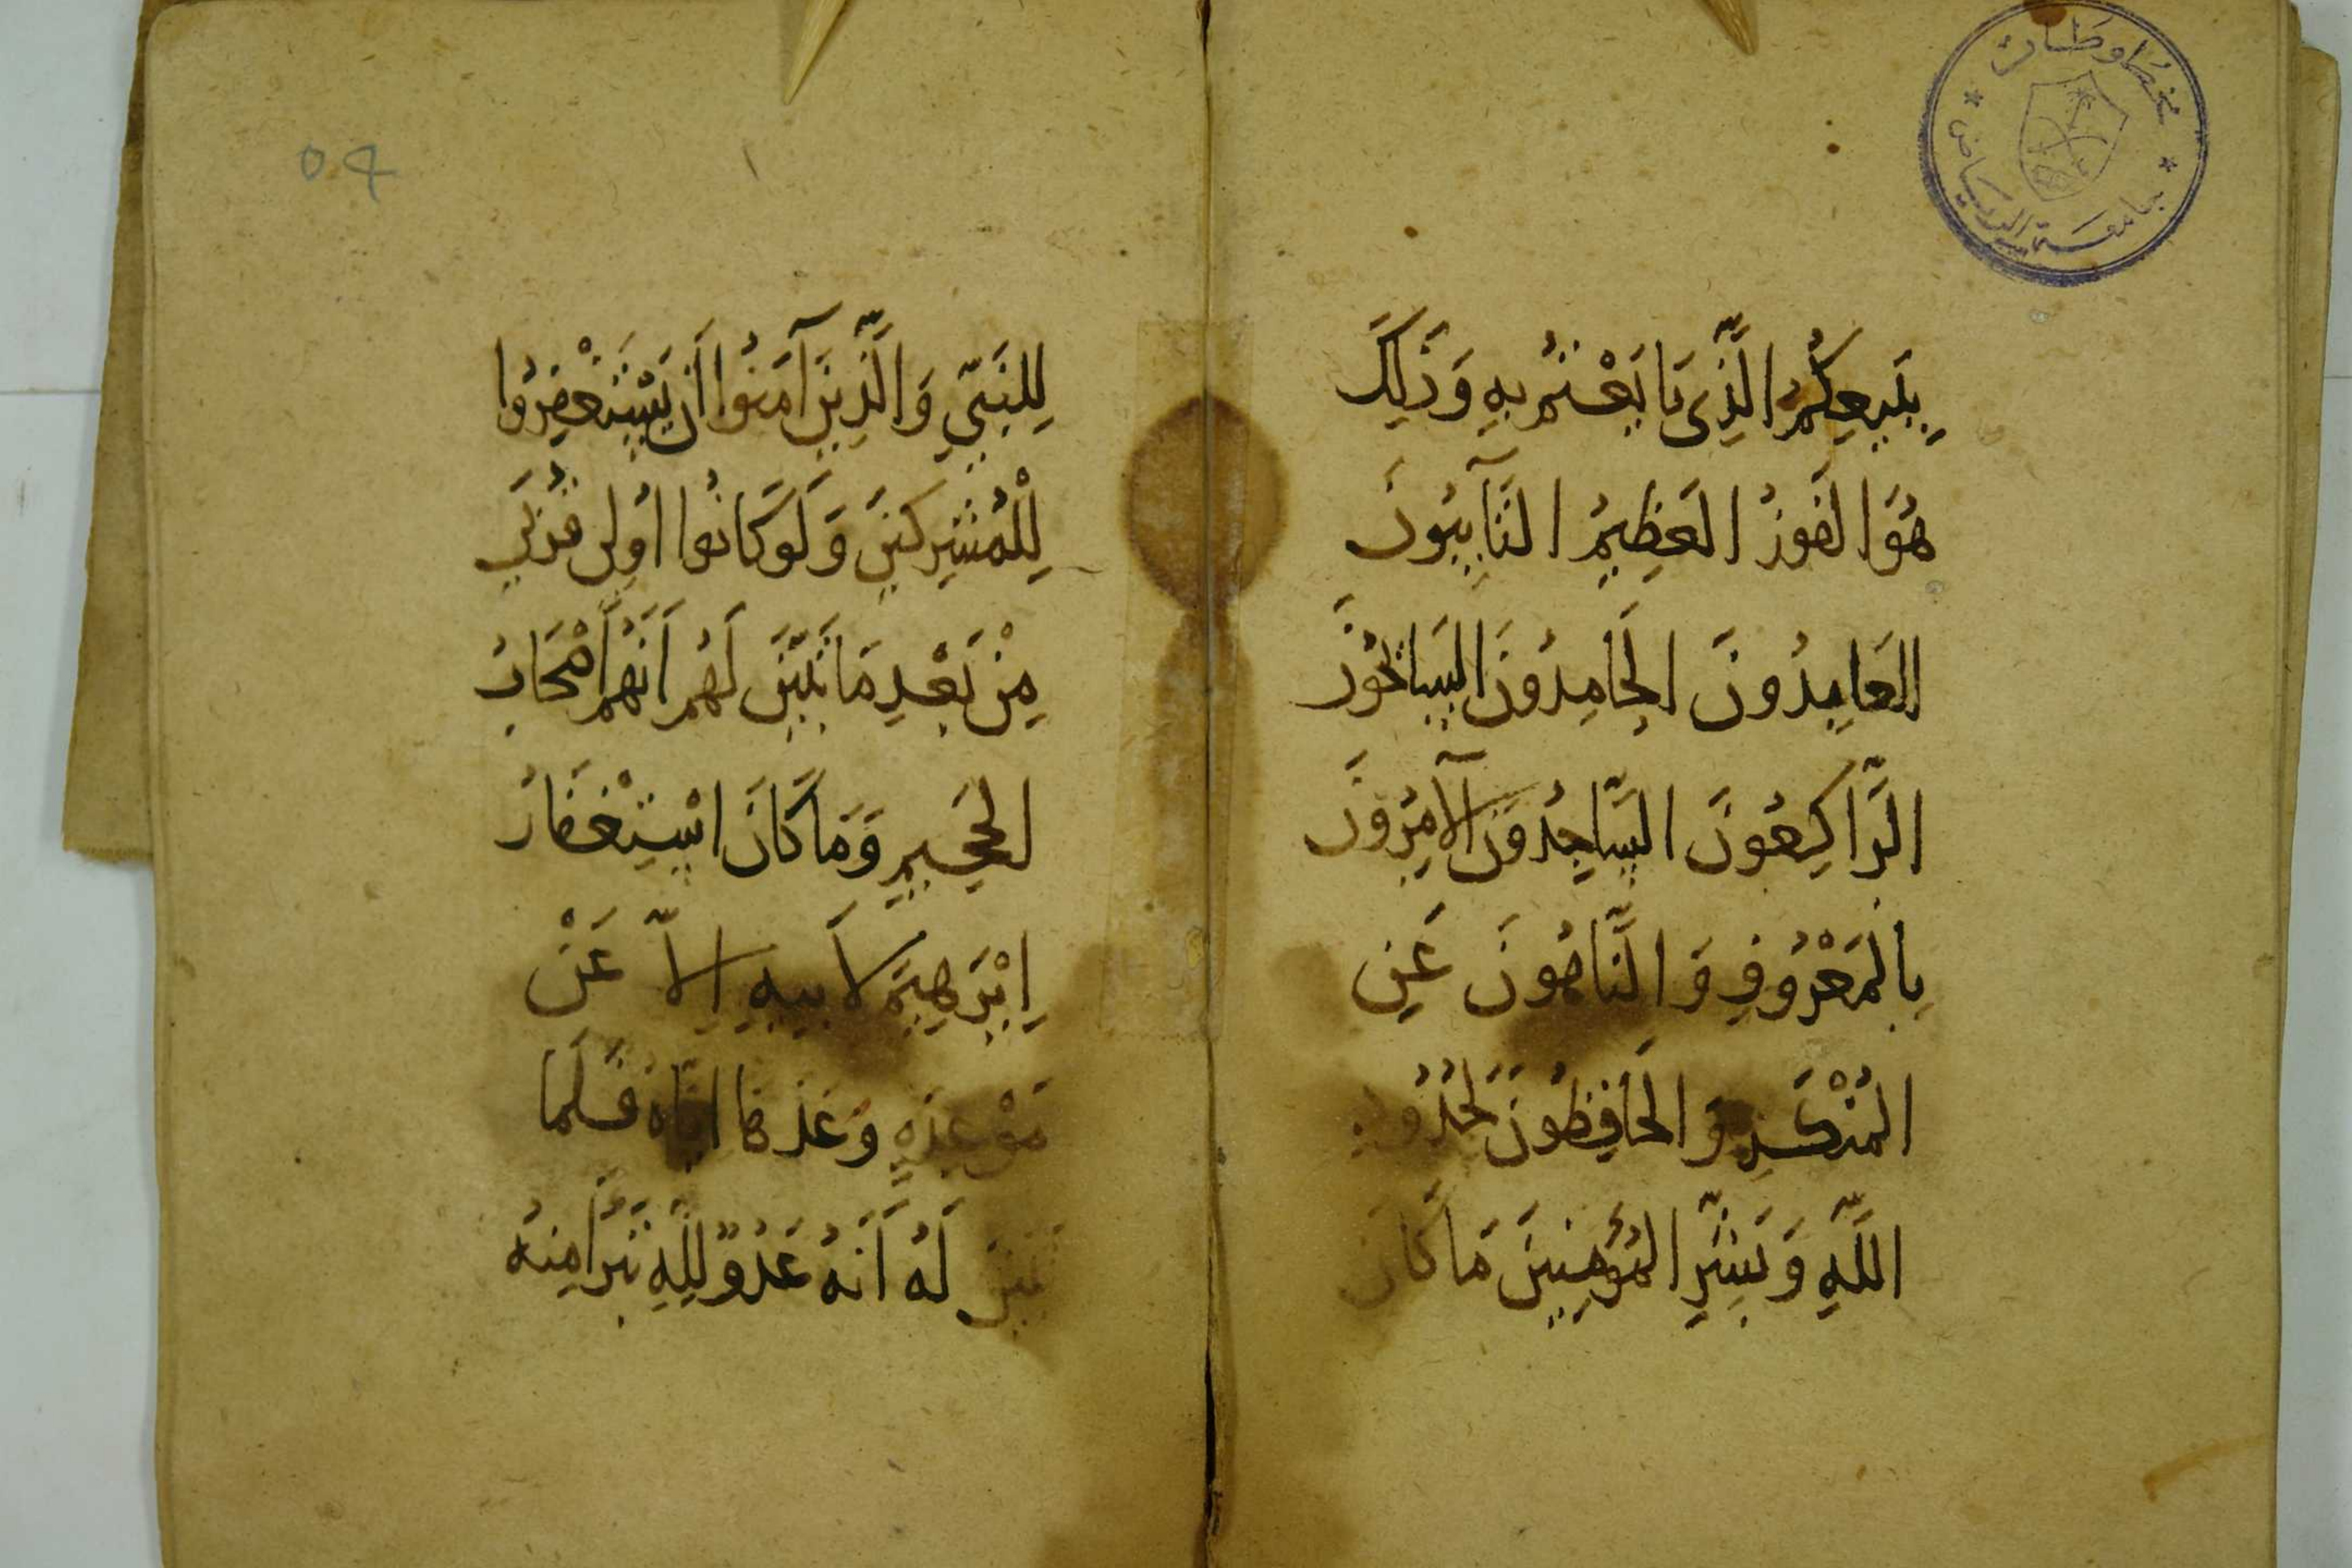 مخطوطات
جامعة الرياض
بِبَيعِكُمُ الَّذِى بَايَعْتُم بِهِ وَذَلِكَ
هُوَ الفَوزُ العَظِيمُ التَآيِبُونَ
العَابِدُونَ الحَامِدُونَ السَايحُونَ
الرَّاكِعُونَ السَّاجِدُونَ الآمِرُونَ
بِالمَعْرُوفِ وَالنَّاهُونَ عَنِ
المُنْكَرِ وَالحَافِظُونَ لحُدُودِ
اللَّهِ وَبَشِّرِ المُؤمِنِينَ مَا كَانَ
٥٩
لِلنَبِيّ وَالَّذِينَ آمَنُوا اَن يَسْتَغْفِرُوا
لِلْمُشْرِكينَ وَلَو كَانُوا اُولِى قُرْبَي
مِنْ بَعْدِ مَا تَبَيَّنَ لَهُم اَنَهُم أَصْحَابُ
الجَحِيمِ وَمَا كَانَ اسْتِغْفَارُ
اِبْرَهِيمَ لاَبِيهِ اِلاّ عَنْ
مَوْعِدَةٍ وَعَدَهَا ايَّاهُ فَلَمَا
تَبَيَنَ لَهُ اَنَهُ عَدُوٌ لِلَّهِ تَبَرَأَ مِنهُ